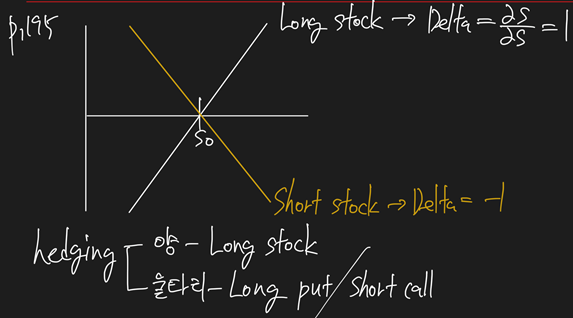 p.195
Long stock → Delta = ∂S/∂S = 1
S₀
Short stock → Delta = -1
hedging
양 - Long stock
울타리 - Long put / Short call